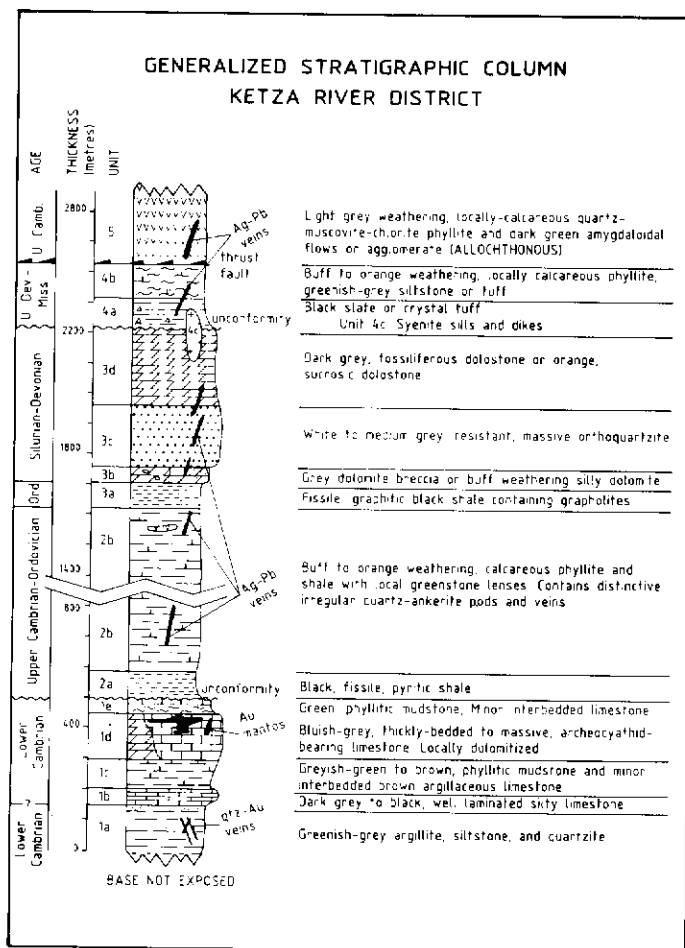 GENERALIZED STRATIGRAPHIC COLUMN
KETZA RIVER DISTRICT
AGE
THICKNESS
(metres)
UNIT
U Camb.
U Dev-
Miss
Silurian-Devonian
Ord
Upper Cambrian-Ordovician
Lower
Cambrian
?
Lower
Cambrian
2800
2200
1800
1400
800
400
0
5
4b
4a
4c
3d
3c
3b
3a
2b
2b
2a
1e
1d
1c
1b
1a
Ag-Pb
veins
thrust
fault
unconformity
Ag-Pb
veins
unconformity
Au
mantos
qtz-Au
veins
BASE NOT EXPOSED
Light grey weathering, locally-calcareous quartz-
muscovite-chlorite phyllite and dark green amygdaloidal
flows or agglomerate (ALLOCHTHONOUS)
Buff to orange weathering, locally calcareous phyllite,
greenish-grey siltstone or tuff
Black slate or crystal tuff
Unit 4c Syenite sills and dikes
Dark grey, fossiliferous dolostone or orange,
sucrosic dolostone
White to medium grey resistant, massive orthoquartzite
Grey dolomite breccia or buff weathering silty dolomite
Fissile, graphitic black shale containing graptolites
Buff to orange weathering, calcareous phyllite and
shale with local greenstone lenses Contains distinctive
irregular quartz-ankerite pods and veins
Black, fissile, pyritic shale
Green phyllitic mudstone, Minor interbedded limestone
Bluish-grey, thickly-bedded to massive, archeocyathid-
bearing limestone Locally dolomitized
Greyish-green to brown, phyllitic mudstone and minor
interbedded brown argillaceous limestone
Dark grey to black, well laminated silty limestone
Greenish-grey argillite, siltstone, and quartzite